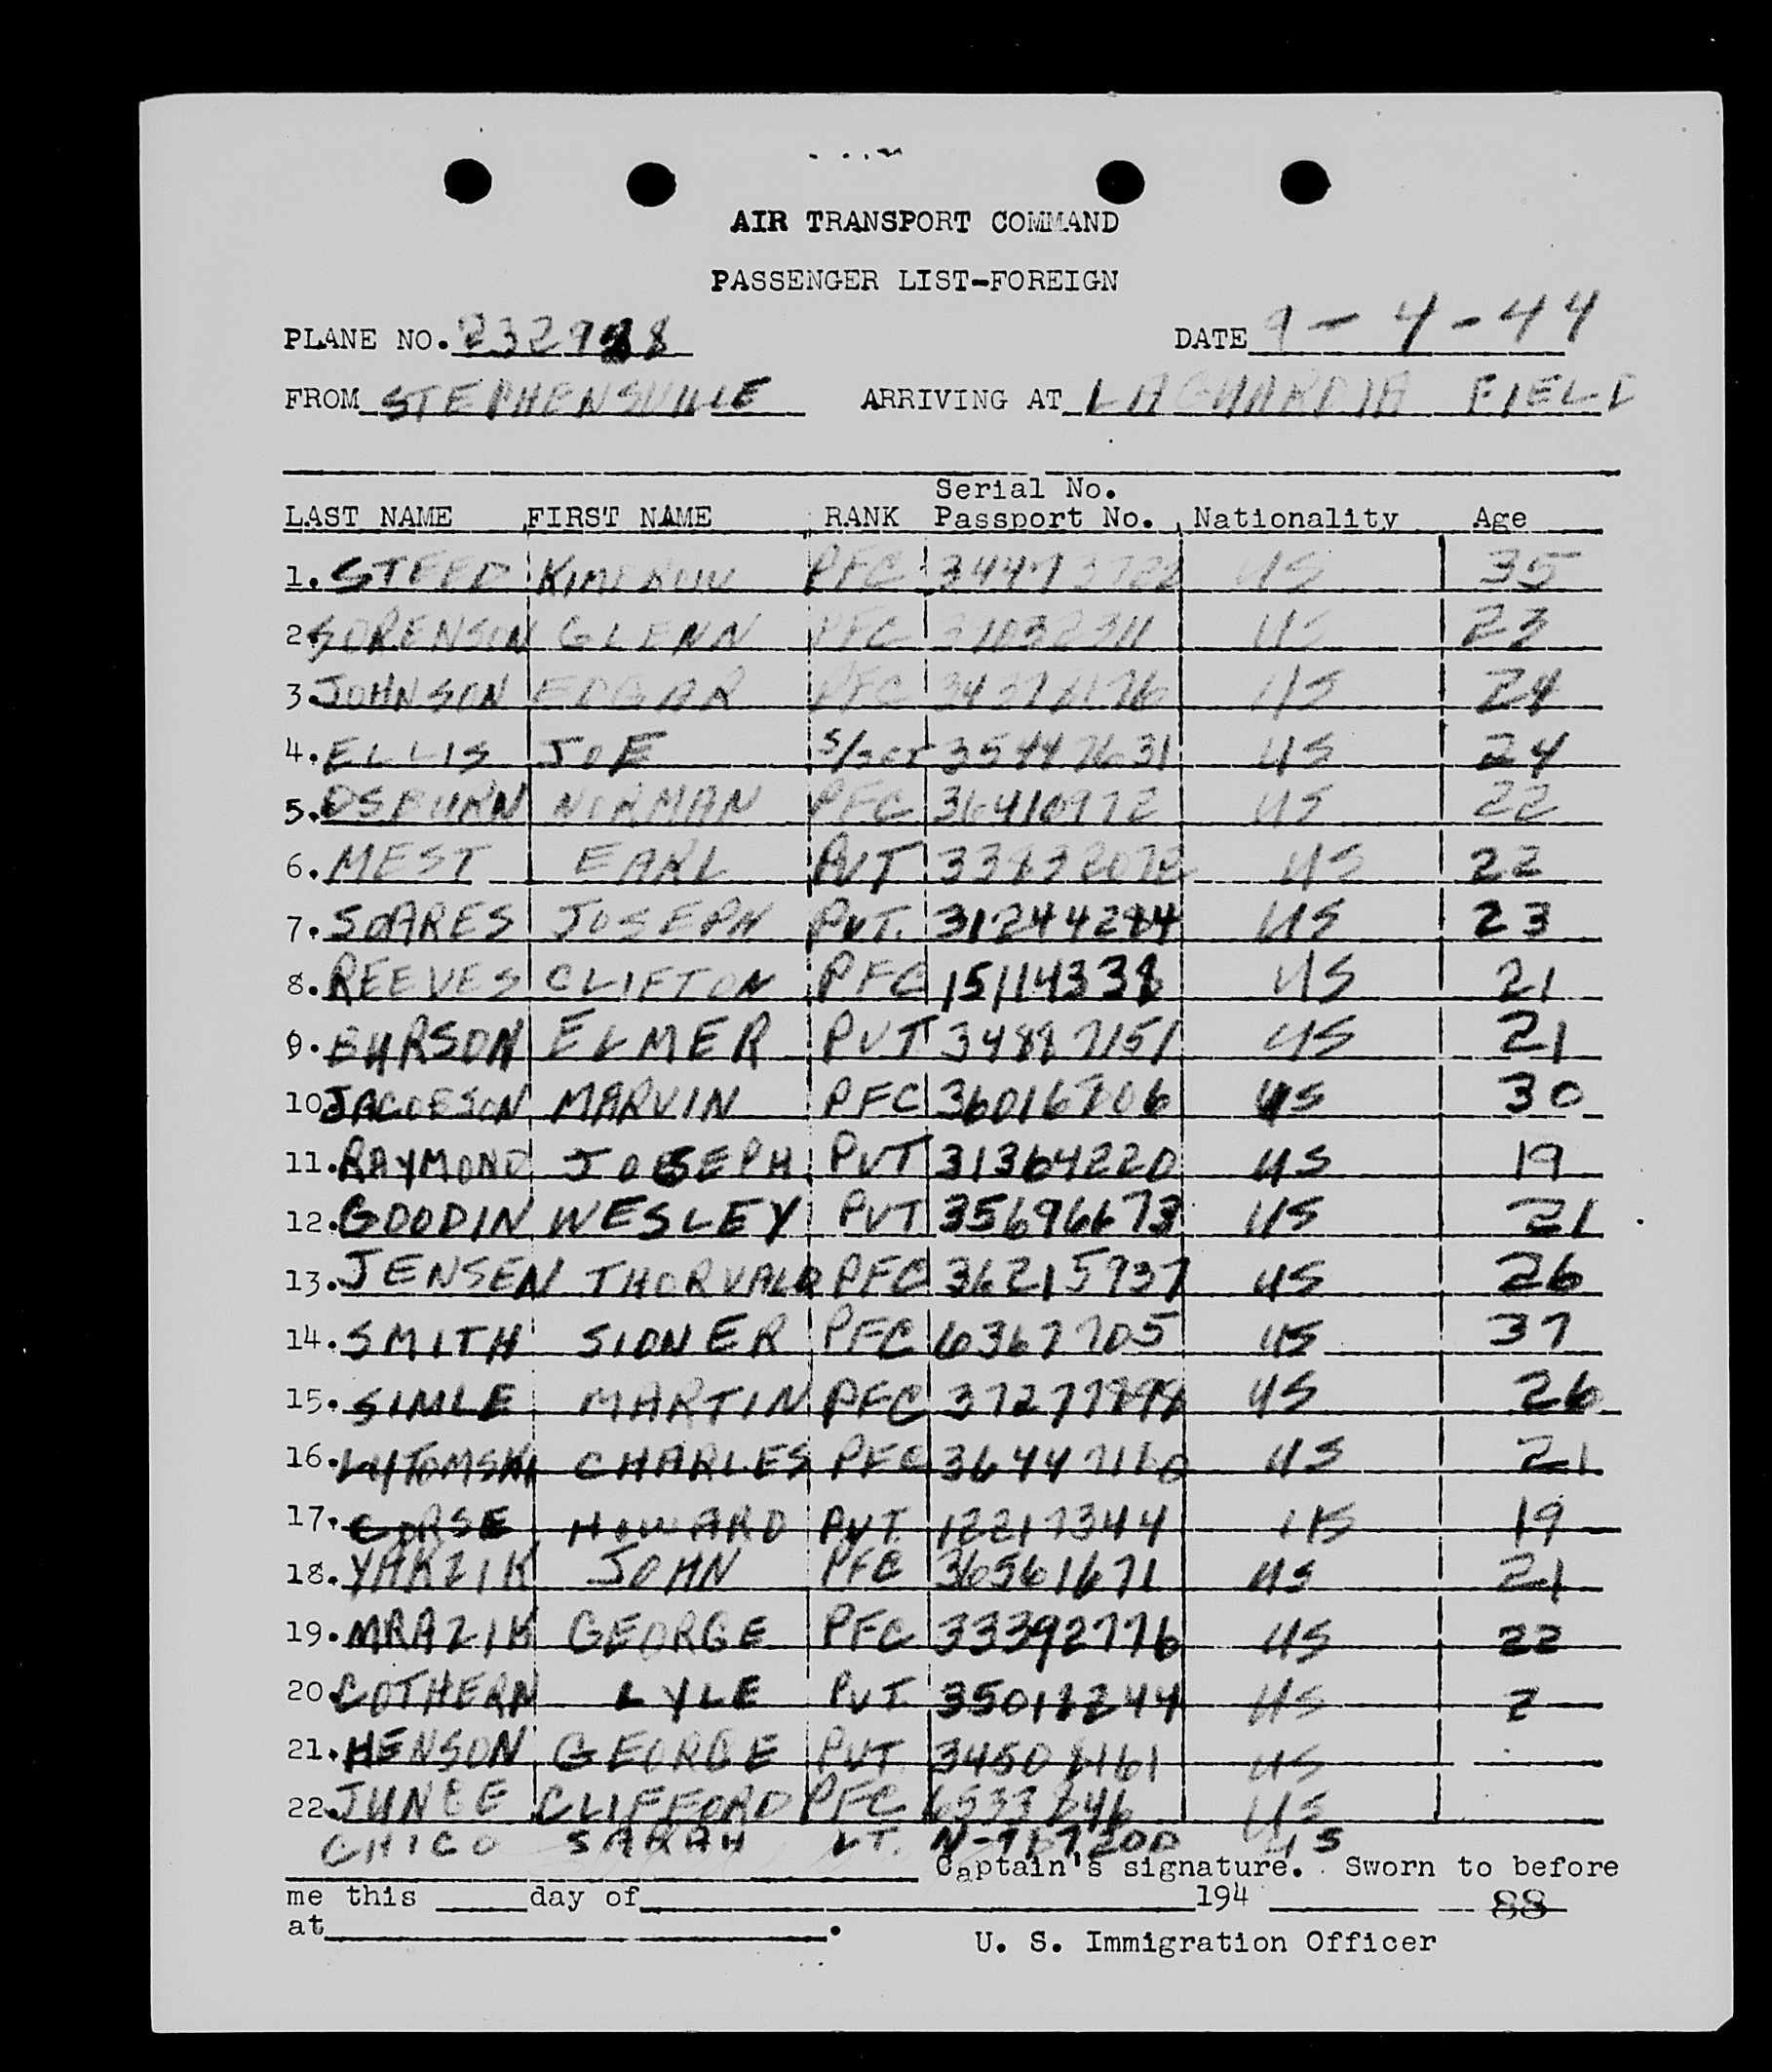 AIR TRANSPORT COMMAND
PASSENGER LIST-FOREIGN
PLANE NO. DATE 9-4-44
FROM STEPHENSVILLE ARRIVING AT LAGUARDIA FIELD
Serial No.
LAST NAME FIRST NAME RANK Passport No. Nationality Age
1. STEED PFC US 35
2. SORENSON GLENN PFC US 23
3. JOHNSON EDGAR PFC US 24
4. ELLIS JOE S/SGT 35447631 US 24
5. OSBURN NORMAN PFC 36410972 US 22
6. MEST EARL PVT 33832072 US 22
7. SOARES JOSEPH PVT. US 23
8. REEVES CLIFTON PFC 15114338 US 21
9. BURSON ELMER PVT 34887151 US 21
10. JACOBSON MARVIN PFC US 30
11. RAYMOND JOSEPH PVT 31364220 US 19
12. GOODIN WESLEY PVT 35696673 US 21
13. JENSEN THORVALD PFC 36215937 US 26
14. SMITH PFC 6367705 US 37
15. SIMLE MARTIN PFC US 26
16. LUTOMSKI CHARLES PFC US 21
17. CORSE HOWARD PVT. 12217344 US 19
18. YAKZIK JOHN PFC 36561671 US 21
19. MRAZIK GEORGE PFC 33392776 US 22
20. COTHERN LYLE PVT. 35018244 US 2
21. HENSON GEORGE PVT. 34508161 US
22. JUNGE CLIFFORD PFC US
CHICO SARAH LT. US
Captain's signature. Sworn to before
me this day of 194 88
at .
U. S. Immigration Officer